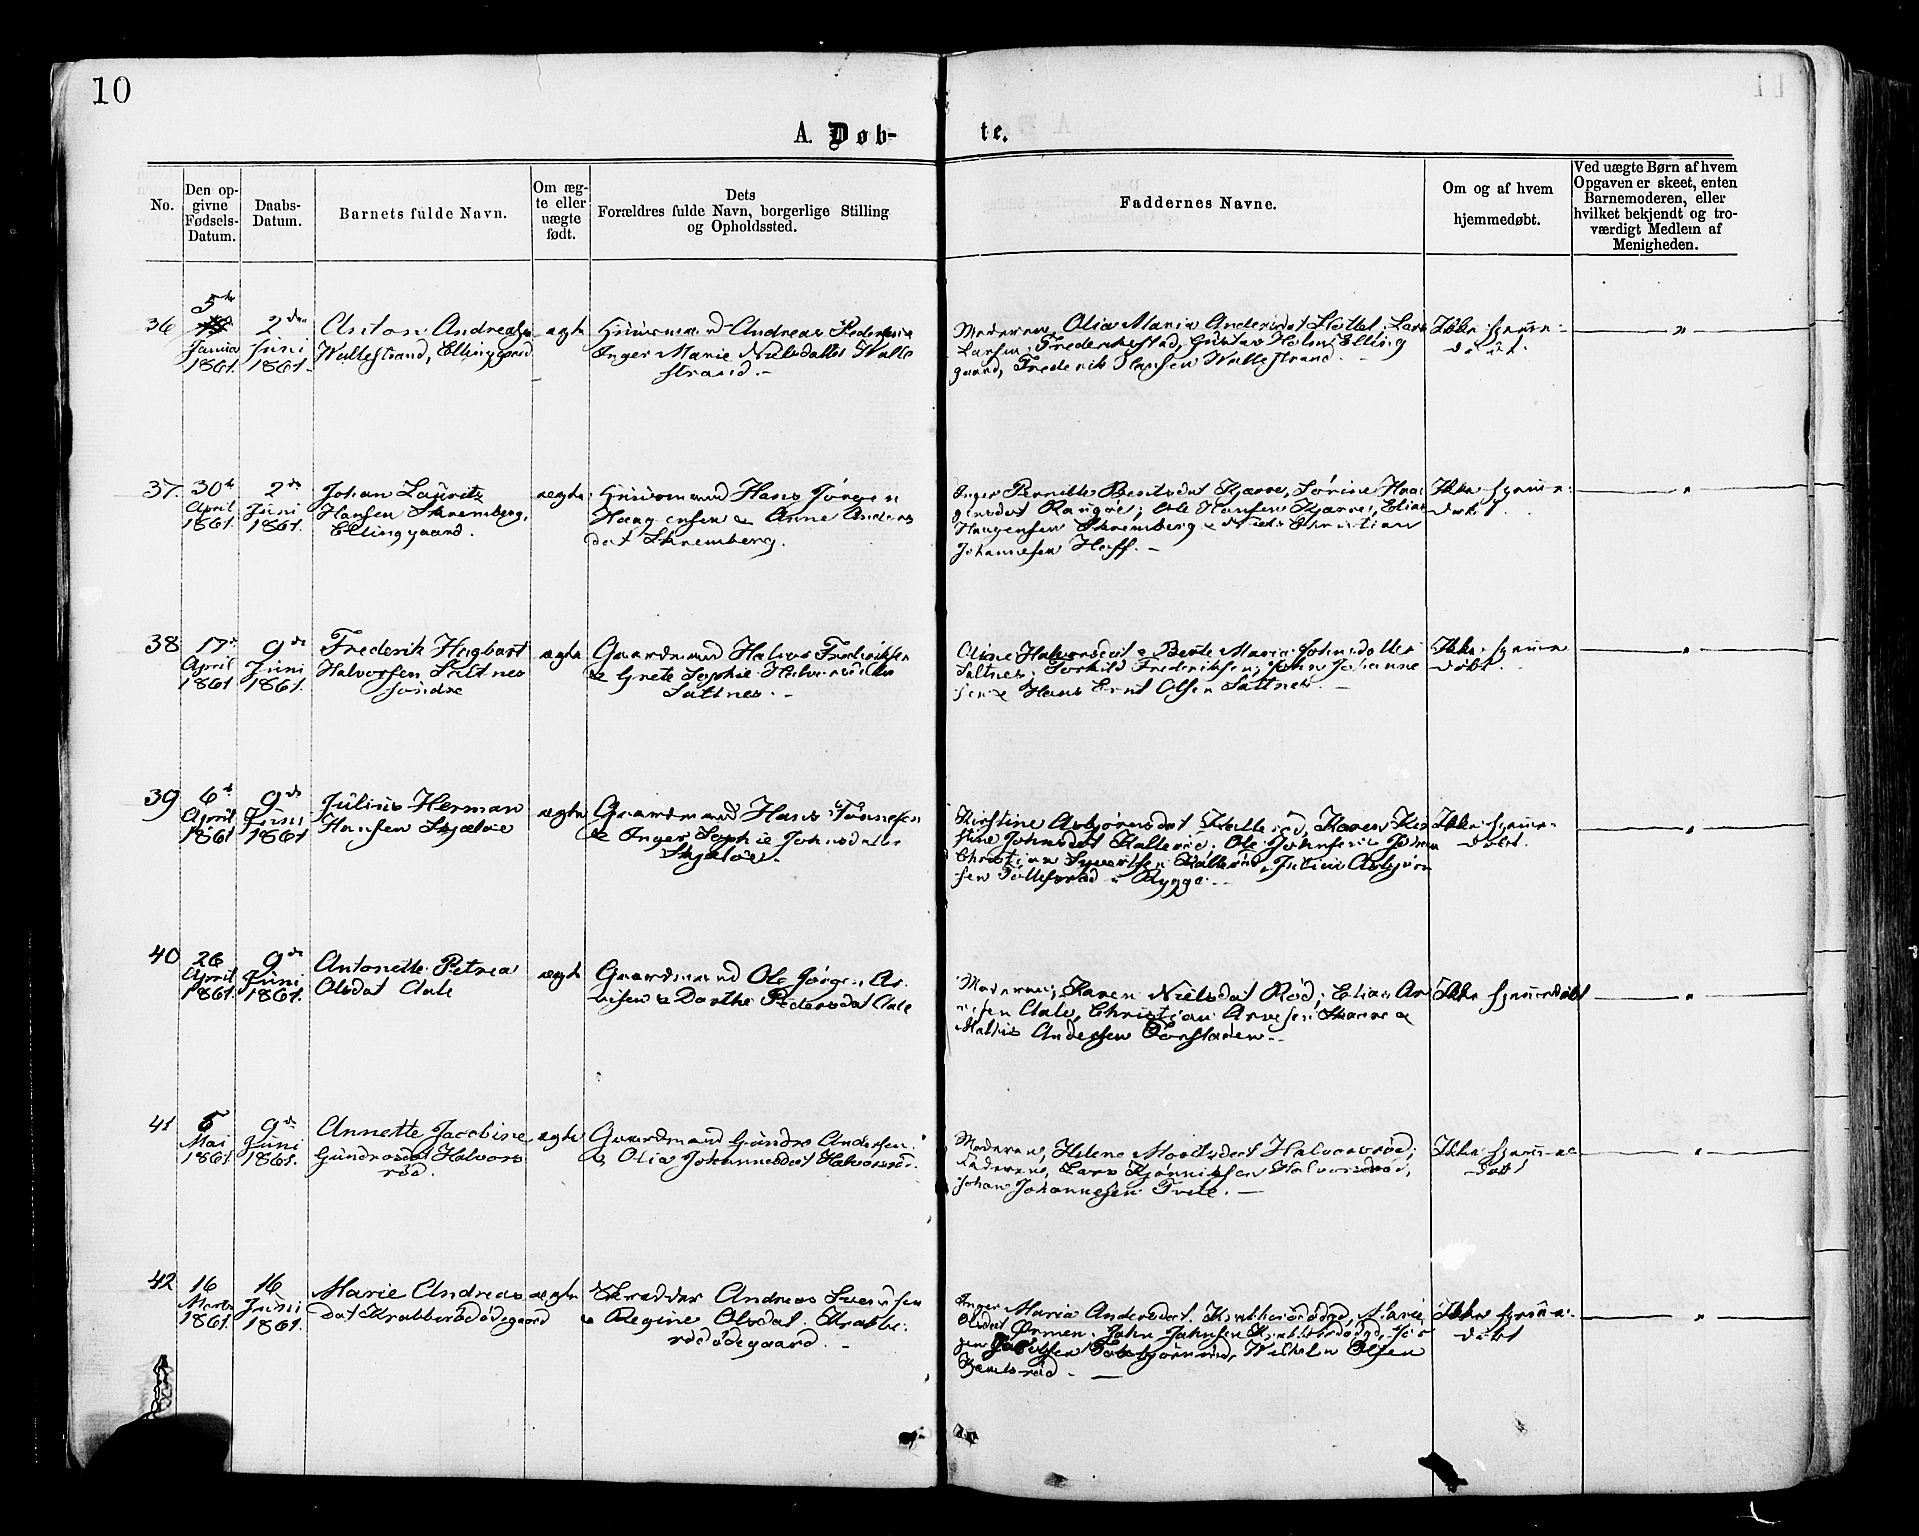 10
A. Døb-
te.
No.
Den op-
givne
Fødsels-
Datum.
Daabs-
Datum.
Barnets fulde Navn.
Om æg-
te eller
uægte
født.
Dets
Forældres fulde Navn, borgerlige Stilling
og Opholdssted.
Faddernes Navne.
Om og af hvem
hjemmedøbt.
Ved uægte Børn af hvem
Opgaven er skeet, enten
Barnemoderen, eller
hvilket bekjendt og tro-
værdigt Medlem af
Menigheden.
36
5te
1861.
2den
Juni
1861.
Anton Andreas
Vallestrand, Ellinggaard
ægte
Huusmand Andreas Pedersen
Inger Marie Nielsdatter Valle
strand.-
Moderen, Olia Maria Andersdat
Larsen, Frederikstad, Gustav Elling
gaard, Frederik Hansen Vallestrand.
Ikke hjemme-
døbt.
37.
30te
April
1861
2den
Juni
1861.
Johan Lauritz
Hansen Skremberg,
Ellinggaard.
ægte
Huusmand Hans Jørgen
Haagensen & Anne Anders
dat Skremberg.
Inger Pernille Bentsdat Kjærre, Sørine Haa
gensdat Rangøe, Ole Hansen Kjærre, Elias
Haagensen Skremberg & Christian
Johannesen Hoff.-
Ikke hjemme-
døbt.
38
17de
April
1861
9de
Juni
1861
Frederik Hagbart
Halvorsen Saltnes
søndre
ægte
Gaardmand Halvor Frederiksen
& Grete Sophie
Saltnes.-
Oline Halvorsdat & Berte Maria Johnsdatter
Saltnes, Torkild Frederiksen, John Johanne
sen & Hans Olsen Saltnes.-
Ikke hjemme
døbt.
39
6te
April
1861
9de
Juni
1861
Julius Herman
Hansen Skjæløe
ægte
Gaardmand Hans Tønnesen
& Inger Sophie Johnsdatter
Skjæløe.
Kirstine Asbjørnsdat Kallerød, Karen Kir
stine Johnsdat Kallerød, Ole Johnsen
Christian Syvertsen Kallerød, Julius Asbjørn
sen Tollefsrød i Rygge.-
Ikke hjemme-
døbt.
40
26
April
1861.
9de
Juni
1861.
Antonette Petrea
Olsdat Aale
ægte
Gaardmand Ole Jørgen Ar-
nesen & Dorthe Pedersdat Aale
Moderen, Karen Nielsdat Rød, Elias Ar
nesen Aale, Christian Arnesen &
Mathis Andersen Torstaden.-
Ikke hjemmedøbt
41
5
Mai
1861.
9de
Juni
1861.
Annette Jacobine
Gundrosdat Halvors
rød.
ægte
Gaardmand Gundro Andersen
& Olia Johannesdat Halvorsrød.
Moderen, Helene Halvorsrød,
Faderen, Lars Halvorsrød,
Johan Johannesen Tvete.-
Ikke hjemme
døbt
42
16
Marts
1861.
16
Juni
1861.
Marie Andreas
dat Krabberødødegaard
ægte
Skrædder Andreas Svendsen
& Regine Olsdat Krabbe-
rødødegaard.-
Inger Maria Andersdat, Marie
Olsdat Ørmen, John Johnsen
Torbjørnrød, Wilhelm Olsen
Ikke hjemme-
døbt